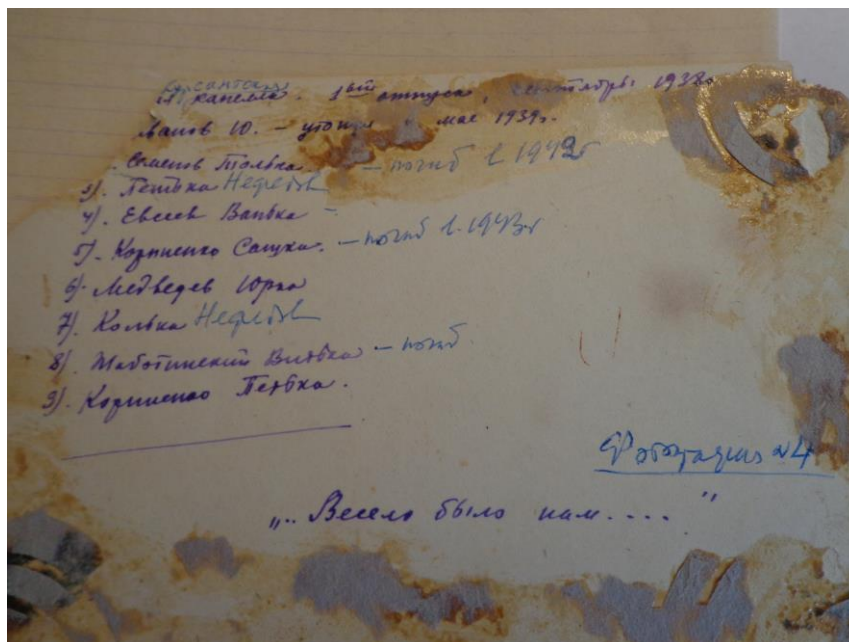 капелла. 1ый отпуск, сентябрь 1938.
Ю. – мае 1939г.
Семенов Толька – погиб в 1942г
3). Петька Нефедов
4). Евсеев Ванька –
5). Корниенко Сашка. – погиб в 1943г
6). Медведев Юрка
7). Колька Нефедов
8). Жаботинский Витька – погиб.
9). Корниенко Петька.
Фотография №4
"... Весело было нам...."